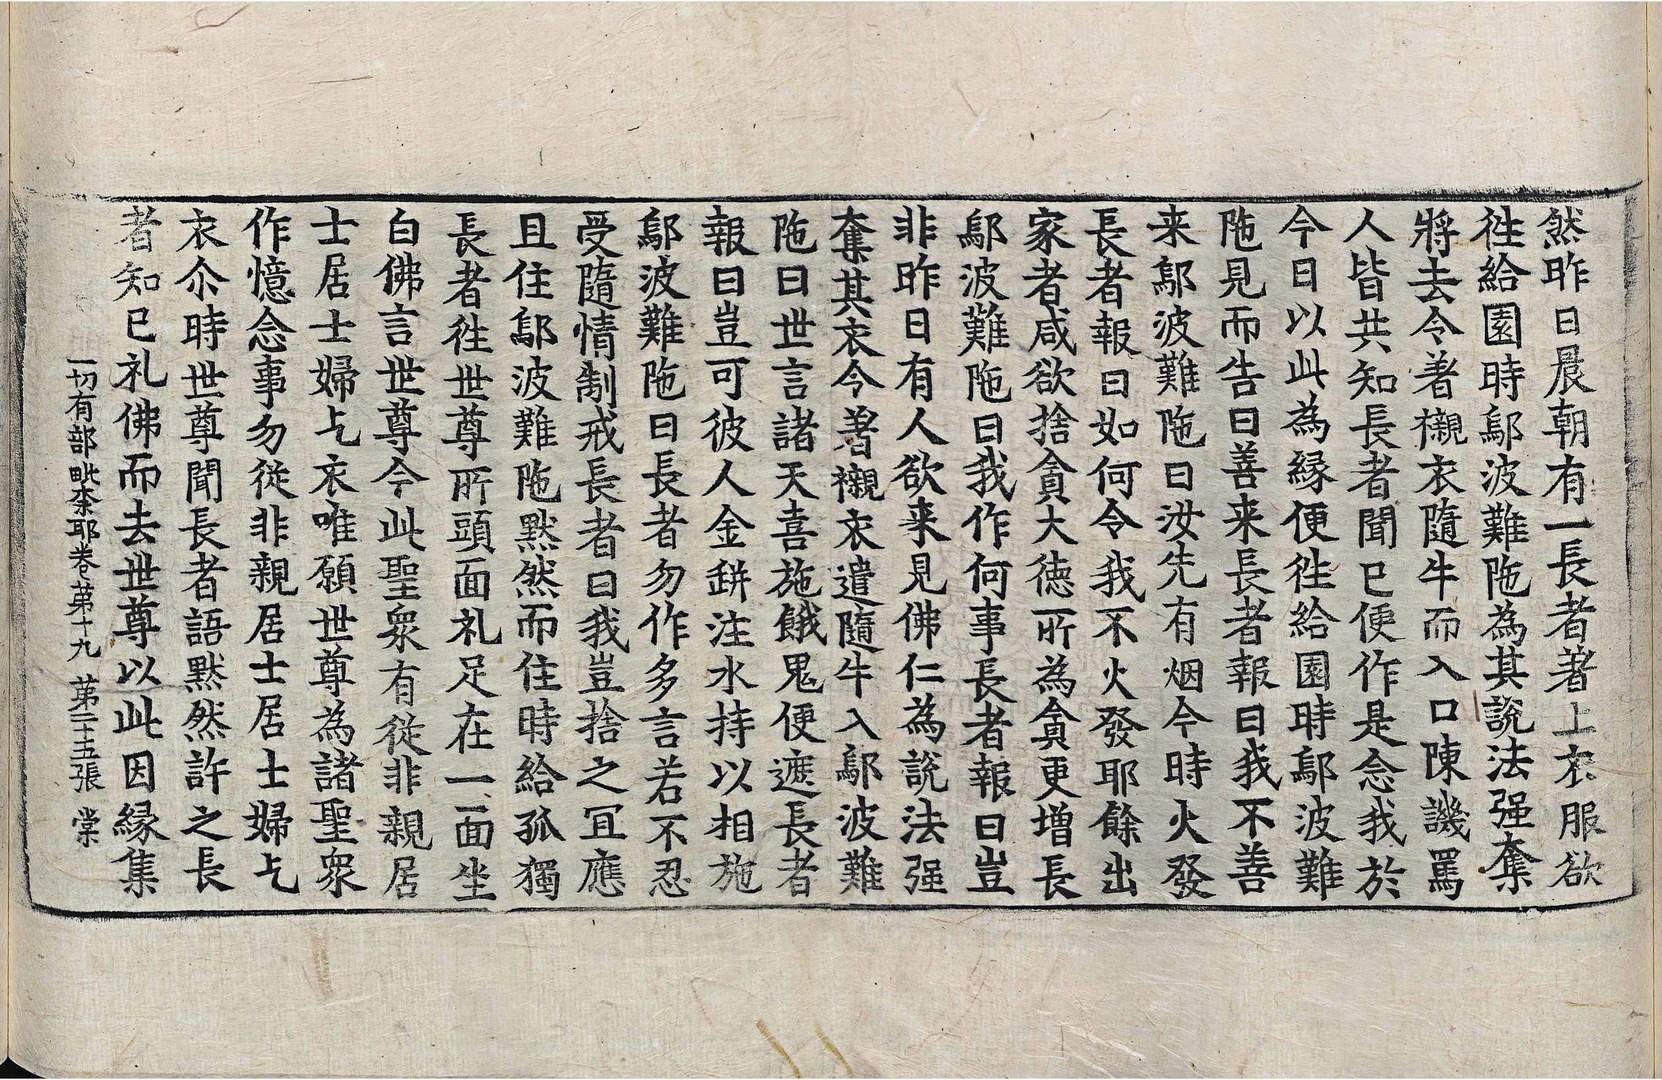 然昨日晨朝有一長者著上衣服欲
徃給園時鄔波難陁為其說法强奪
將去令著襯衣隨牛而入口陳譏罵
人皆共知長者聞已便作是念我於
今日以此為緣便徃給園時鄔波難
陁見而告曰善来長者報曰我不善
来鄔波難陁曰汝先有烟今時火發
長者報曰如何令我不火發耶餘出
家者咸欲捨貪大德所為貪更增長
鄔波難陁曰我作何事長者報曰豈
非昨日有人欲来見佛仁為說法强
奪其衣令著襯衣遣隨牛入鄔波難
陁曰世言諸天喜施餓鬼便遮長者
報曰豈可彼人金缾注水持以相施
鄔波難陁曰長者勿作多言若不忍
受隨情制戒長者曰我豈捨之冝應
且住鄔波難陁黙然而住時給孤獨
長者徃世尊所頭面礼足在一面坐
白佛言世尊今此聖衆有從非親居
士居士婦乞衣唯願世尊為諸聖衆
作憶念事勿從非親居士居士婦乞
衣尒時世尊聞長者語黙然許之長
者知已礼佛而去世尊以此因緣集
一切有部毗奈耶卷第十九 第二十五張 棠